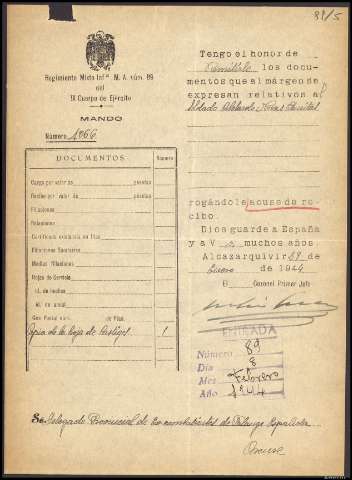 89/5
Regimiento Mixto Infª M. A. núm. 89
del
IX Cuerpo de Ejército
MANDO
Número 1066
DOCUMENTOS
Número
Carga por valor de pesetas
Recibo por valor de pesetas
Filiaciones
Relaciones
Certificado existencia en filas
Medias filiaciones
Hojas de Servicio
id. de hechos
id. de anual
Copia de la hoja de Castigos 1
Tengo el honor de
remitirle los docu-
mentos que al márgen se
expresan relativos al
soldado Abelardo
rogándole acuse de re-
cibo.
Dios guarde a España
y a V. muchos años.
Alcazarquivir de
Enero de 1944
El Coronel Primer Jefe
ENTRADA
Número 89
Día 8
Mes Febrero
Año 1944
Sr. Delegado Provincial de Ex-combatientes de Falange Española
Orense